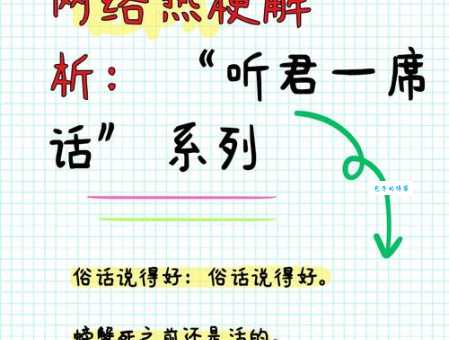 网络热梗解
析：“听君一席
话”系列
俗话说得好：俗话说得好。
螃蟹死之前还是活的。